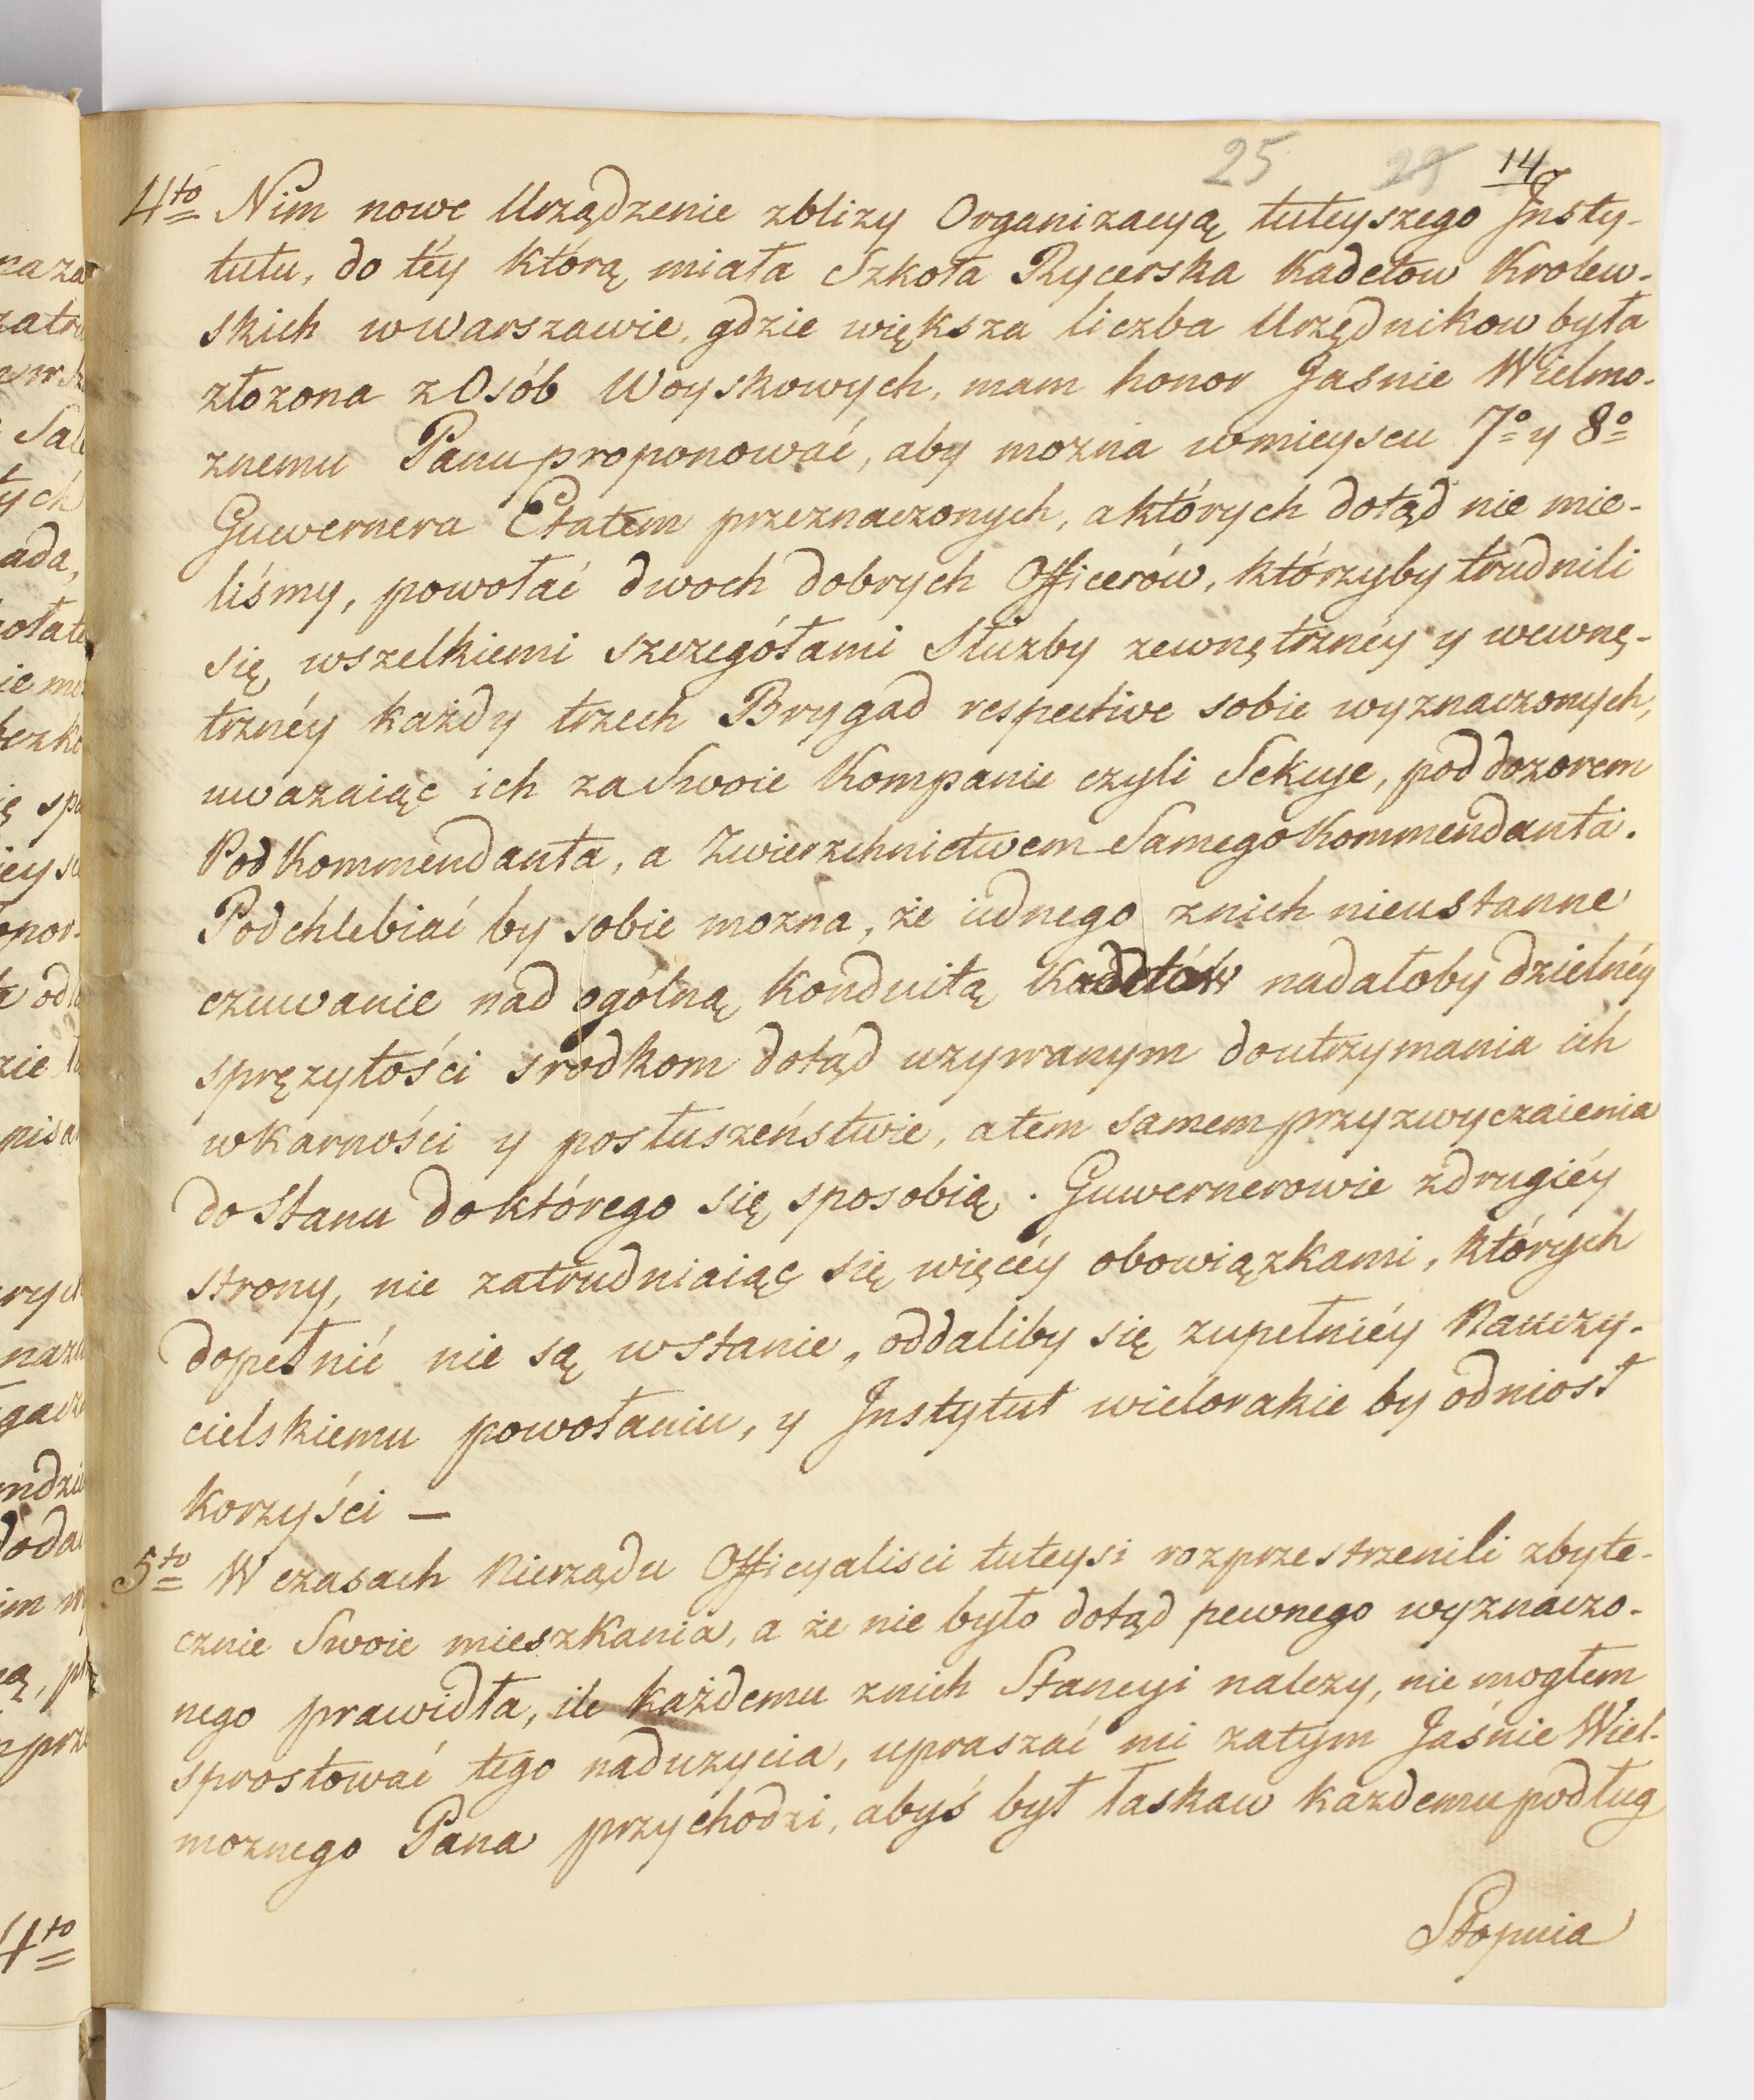 25 28 14
4to Nim nowe Urządzenie zblizy Organizacyą tuteyszego Insty-
tutu, do téy którą miała Szkoła Rycerska Kadetow Krolew-
skich w Warszawie, gdzie większa liczba Urzędnikow była
złozona z Osób Woyskowych, mam honor Jasnie Wielmo-
znemu Panu proponować, aby mozna w mieyscu 7o y 8o
Guwernera Etatem przeznaczonych, a których dotąd nie mie-
liśmy, powołać dwoch dobrych Officerów, którzyby trudnili
się wszelkiemi szczegółami Służby zewnętrznéy y wewnę-
trznéy każdy trzech Brygad respective sobie wyznaczonych,
uwazaiąc ich za Swoie Kompanie czyli Sekcye, pod dozorem
PodKommendanta, a Zwierzchnictwem Samego Kommendanta.
Podchlebiać by sobie mozna, że iednego z nich nieustanne
czuwanie nad ogólną Konduitą Kadetów nadałoby dzielnéy
spręzytości srodkom dotąd uzywanym do utrzymania ich
w Karności y posłuszeństwie, a tem samem przyzwyczaienia
do Stanu do którego się sposobią. Guwernerowie z drugiéy
strony, nie zatrudniaiąc się więcéy obowiązkami, których
dopełnić nie są w Stanie, oddaliby się zupełniéy Nauczy-
cielskiemu powołaniu, y Instytut wielorakie by odniosł
Korzyści —
5to W czasach Nierządu Officyalisci tuteysi rozprzestrzenili zbyte-
cznie Swoie mieszkania, a że nie było dotąd pewnego wyznaczo-
nego prawidła, ile każdemu z nich Stancyi nalezy, nie mogłem
sprostować tego naduzycia, upraszać mi zatym Jaśnie Wiel-
moznego Pana przychodzi, abyś był łaskaw kazdemu podług
Stopnia
4to